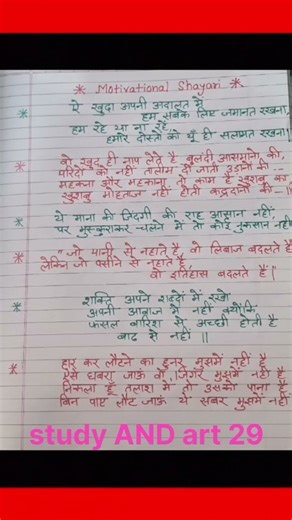 * Motivational Shayari *
* ऐ खुदा अपनी अदालत में
हम सबके लिए जमानत रखना,
हम रहे या ना रहें,
हमारे दोस्तों को यूँ ही सलामत रखना।
* वो खुद ही नाप लेते है बुलंदी आसमानों की,
परिंदों को नहीं तालीम दी जाती उड़ानों की
महकना और महकाना तो काम है खुशबु का
खुशबु मोहताज नहीं होती कद्रदानों की - ||
* ये माना की जिंदगी की राह आसान नहीं,
पर मुस्कुराकर चलने में तो कोई नुकसान नहीं
* "जो पानी से नहाते है, वो लिबाज बदलते है
लेकिन जो पसीने से नहाते है
वो इतिहास बदलते हैं।"
* शक्ति अपने शब्दों में रखो
अपनी आवाज में नहीं क्योंकि
फसल बारिश से अच्छी होती है
बाढ़ से नहीं ||
* हार कर लौटने का हुनर मुझमें नहीं है
ऐसे घबरा जाऊं वो जिगर मुझमें नहीं है
निकला हूँ तलाश में तो उसको पाना है
बिन पाए लौट जाऊं ये सबर मुझमें नहीं
study AND art 29